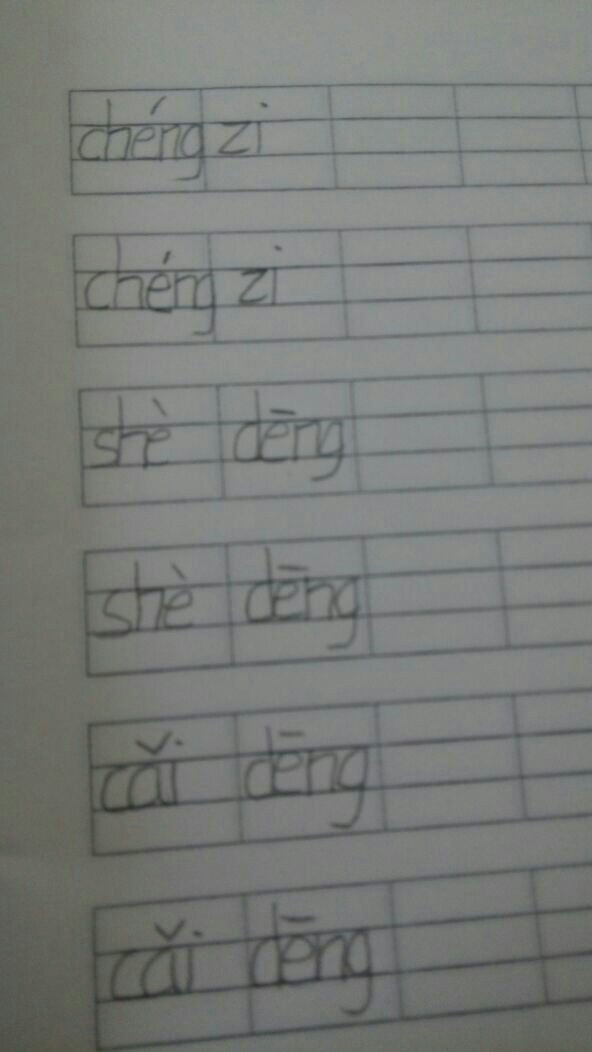 chéng zi
chéng zi
shè dēng
shè dēng
cǎi dēng
cǎi dēng